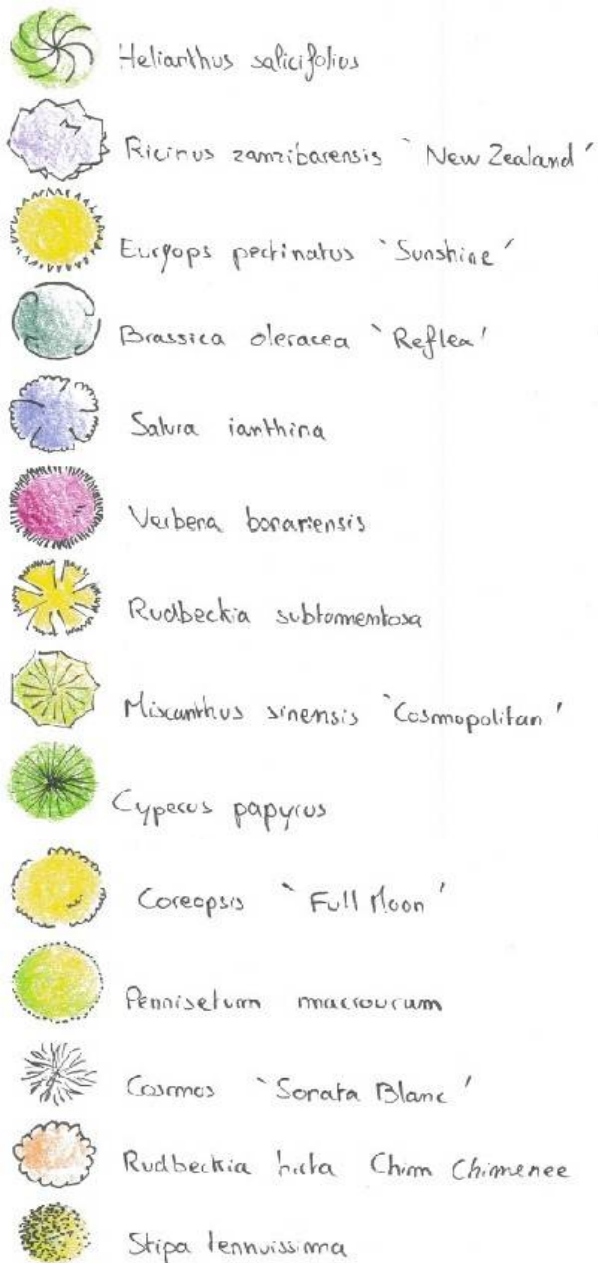 Helianthus salicifolius
Ricinus zanzibarensis `New Zealand'
Euryops pectinatus `Sunshine'
Brassica oleracea `Reflea'
Salvia ianthina
Verbena bonariensis
Rudbeckia subtomentosa
Miscanthus sinensis `Cosmopolitan'
Cyperus papyrus
Coreopsis `Full Moon'
Pennisetum macrourum
Cosmos `Sonata Blanc'
Rudbeckia hirta Chim Chimenee
Stipa tennuissima